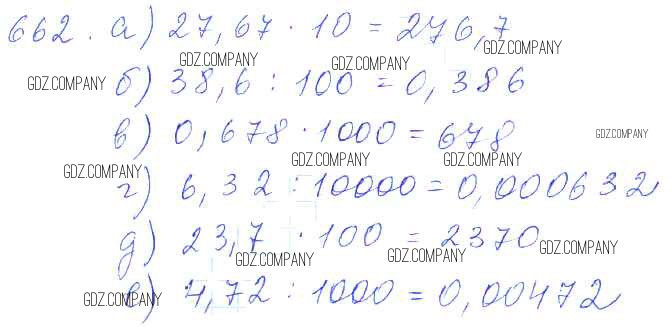 662. а) 27,67 · 10 = 276,7
GDZ.COMPANY
GDZ.COMPANY GDZ.COMPANY
GDZ.COMPANY б) 38,6 : 100 = 0,386
в) 0,678 · 1000 = 678 GDZ.COMPANY
GDZ.COMPANY GDZ.COMPANY
GDZ.COMPANY
г) 6,32 : 10000 = 0,000632
д) 23,7 · 100 = 2370 GDZ.COMPANY
GDZ.COMPANY GDZ.COMPANY
GDZ.COMPANY е) 4,72 : 1000 = 0,00472